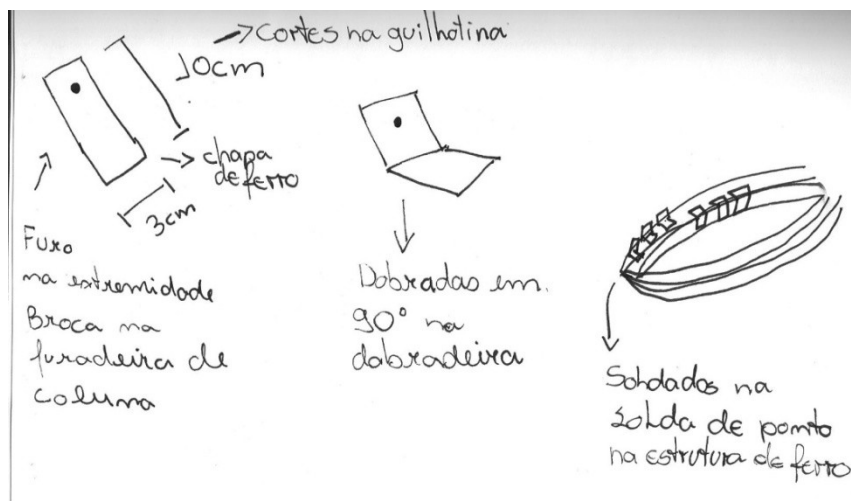 → Cortes na guilhotina
10cm
→ chapa
de ferro
3cm
Furo
na extremidade
Broca na
furadeira de
coluna
Dobradas em.
90° na
dobradeira
Soldados na
Solda de ponto
na estrutura de ferro